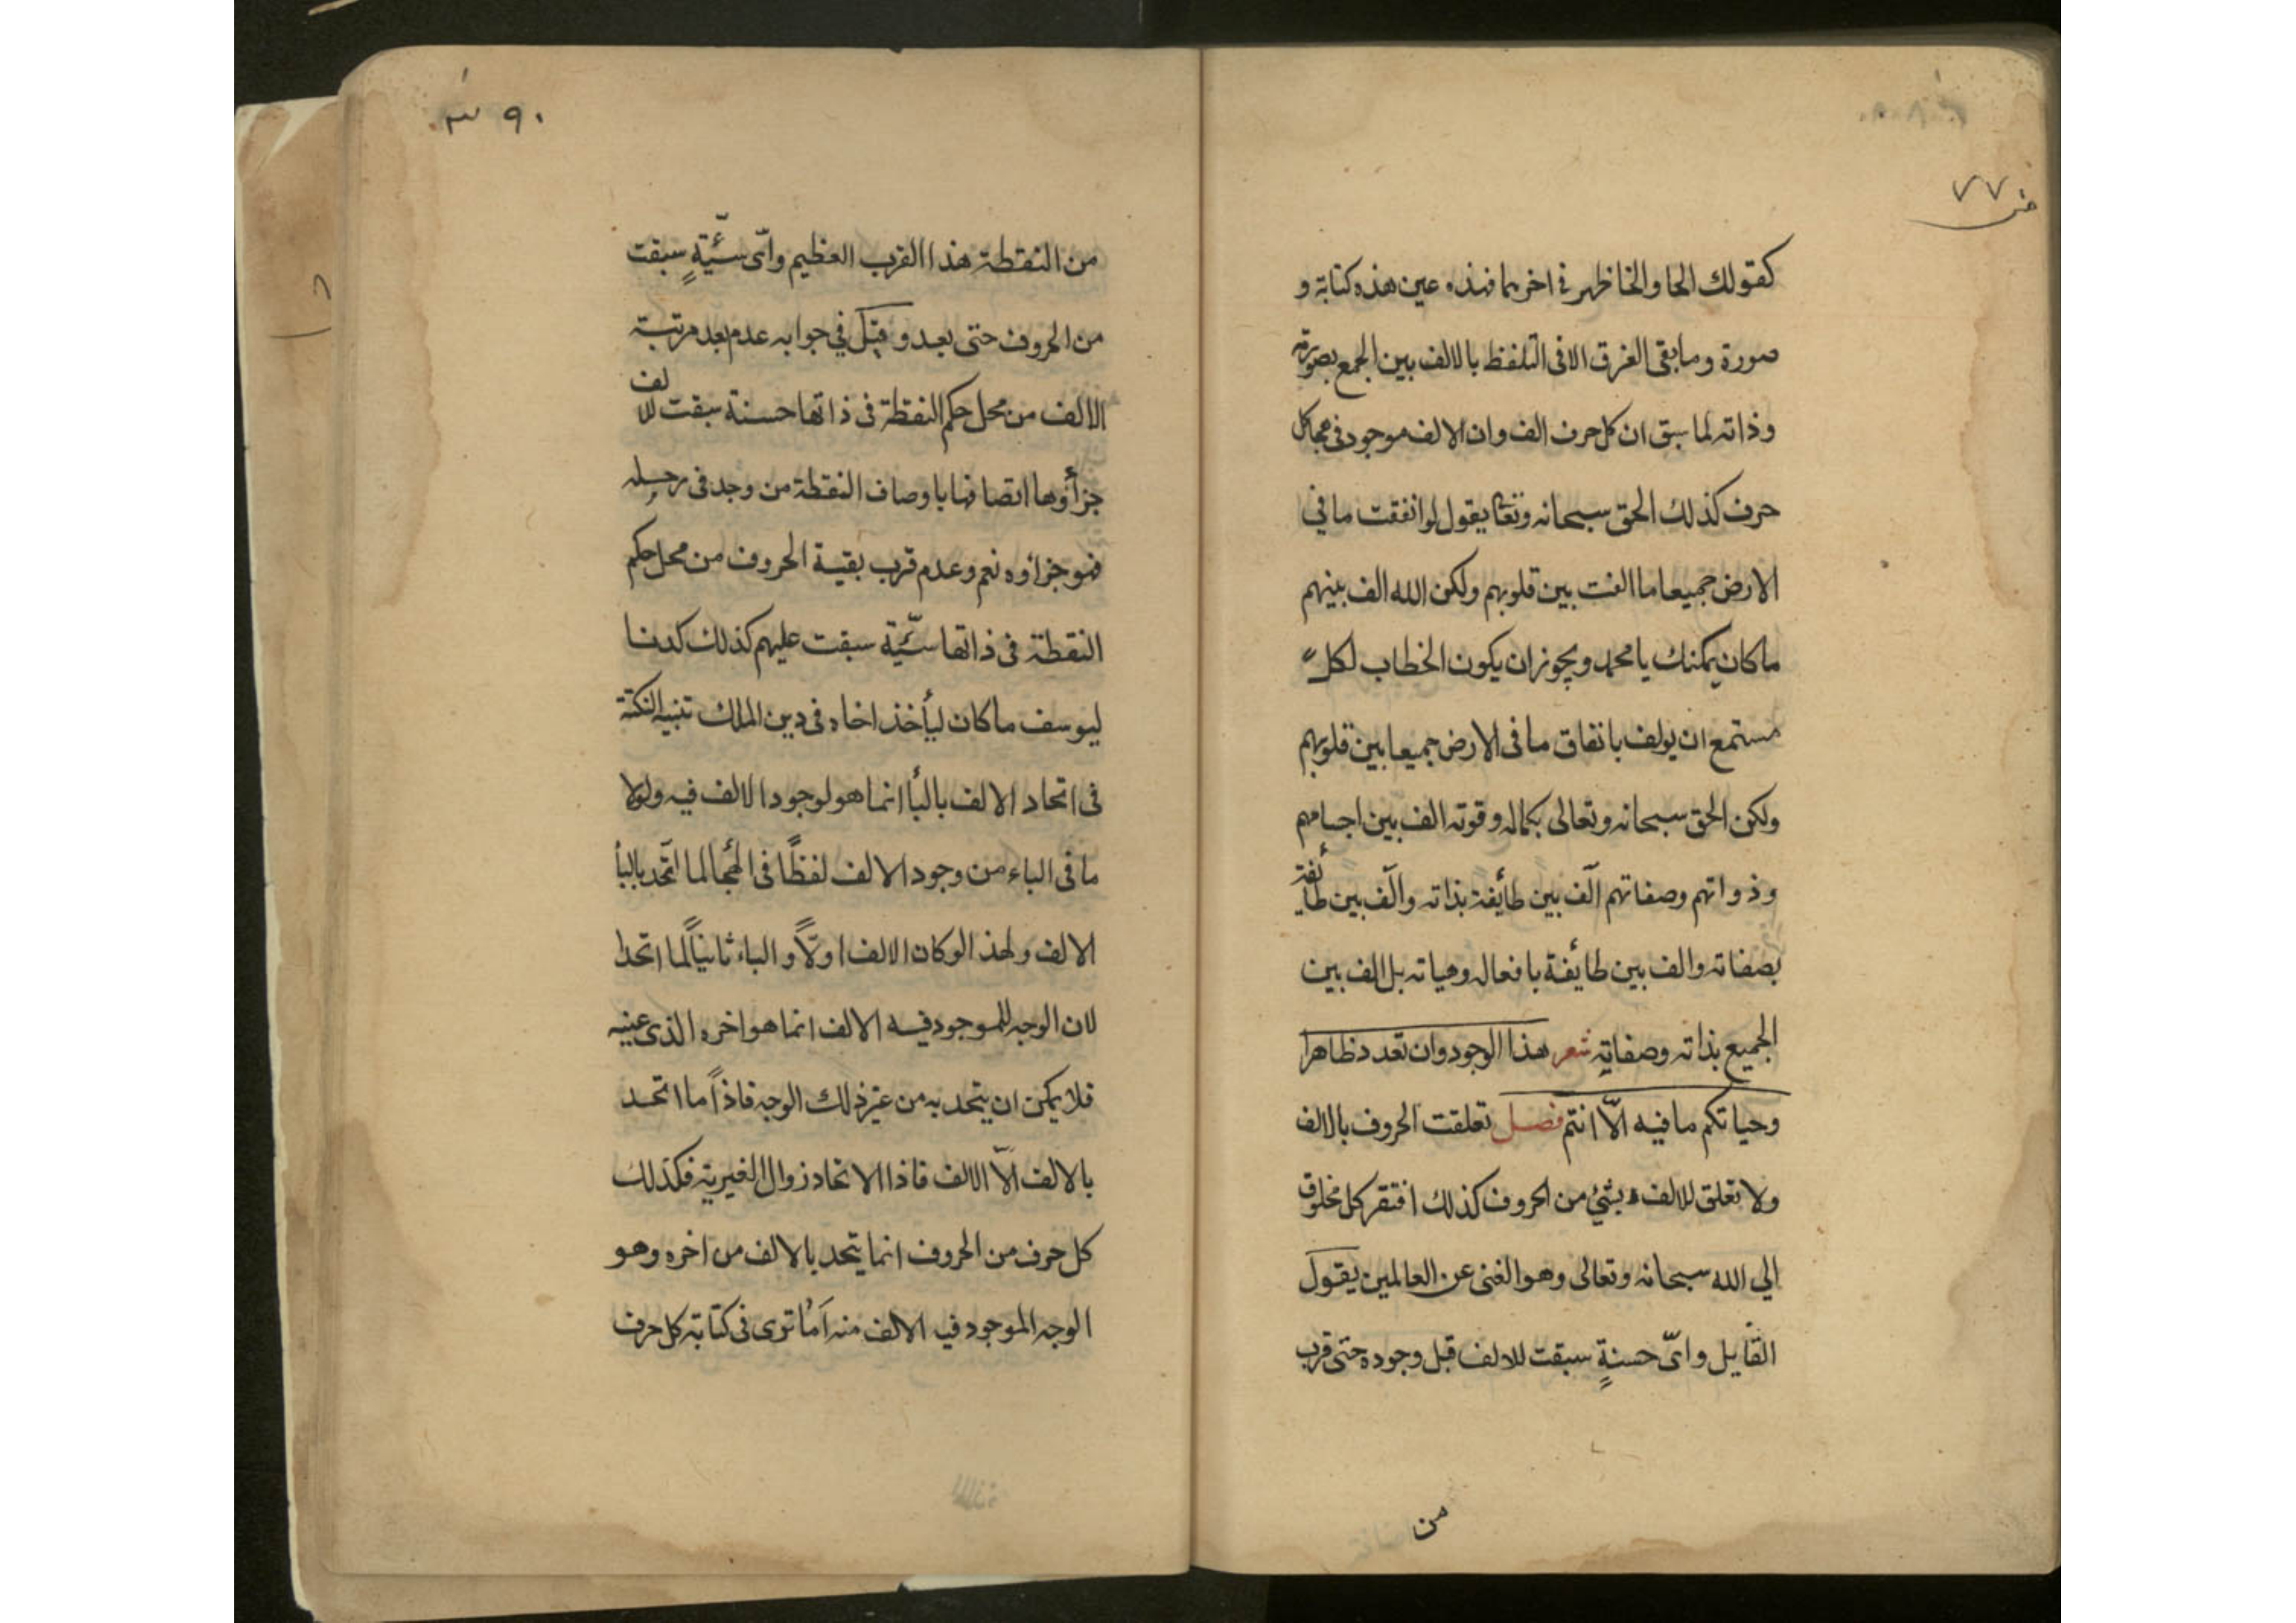 ٧٧
كقولك الحا والخا ظهر في اخرهما فهذه عين هذه كتابة و
صورة وما بقى الفرق الا فى التلفظ بالالف بين الجمع بصورته
وذاته لما سبق ان كل حرف الف وان الالف موجود فى هجا كل
حرف كذلك الحق سبحانه وتعا يقول لو انفقت ما في
الارض جميعا ما الفت بين قلوبهم ولكن الله الف بينهم
ما كان يمكنك يا محمد ويجوز ان يكون الخطاب لكل
مستمع ان يولف باتفاق ما فى الارض جميعا بين قلوبهم
ولكن الحق سبحانه وتعالى بكماله وقوته الف بين اجسامهم
وذواتهم وصفاتهم الّف بين طائفة بذاته والّف بين طائفة
بصفاته والف بين طايفة بافعاله وهياته بل الف بين
الجميع بذاته وصفاته شعر هذا الوجود وان تعدد ظاهرا
وحياتكم ما فيه الّا انتم فصل تعلقت الحروف بالالف
ولا تعلق للالف بشئ من الحروف كذلك افتقر كل مخلوق
الي الله سبحانه وتعالى وهو الغنى عن العالمين يقول
القايل واىّ حسنةٍ سبقت للالف قبل وجوده حتى قرب
من
٩٠
من النقطة هذا القرب العظيم واىّ سيّئةٍ سبقت
من الحروف حتى بعد وقيل في جوابه عدم بعد مرتبة
الالف من محل حكم النقطة فى ذاتها حسنة سبقت للالف
جزاؤها اتصافها باوصاف النقطة من وجد فى رحله
فهو جزاؤه نعم وعدم قرب بقية الحروف من محل حكم
النقطة فى ذاتها سيّئة سبقت عليهم كذلك كدنا
ليوسف ما كان ليأخذ اخاه فى دين الملك تنبيه النكتة
فى اتحاد الالف بالبأ انما هو لوجود الالف فيه ولولا
ما فى الباء من وجود الالف لفظًا فى الهجا لما اتّحد بالبأ
الالف ولهذا لو كان الالف اولًا والباء ثانيًا لما اتحدا
لان الوجه للموجود فيه الالف انما هو اخره الذى عينه
فلا يمكن ان يتحد به من غير ذلك الوجه فاذًا ما اتحد
بالالف الّا الالف فاذا الاتحاد زوال الغيرية فكذلك
كل حرف من الحروف انما يتحد بالالف من اخره وهو
الوجه الموجود فيه الالف منه اَما ترى فى كتابة كل حرف